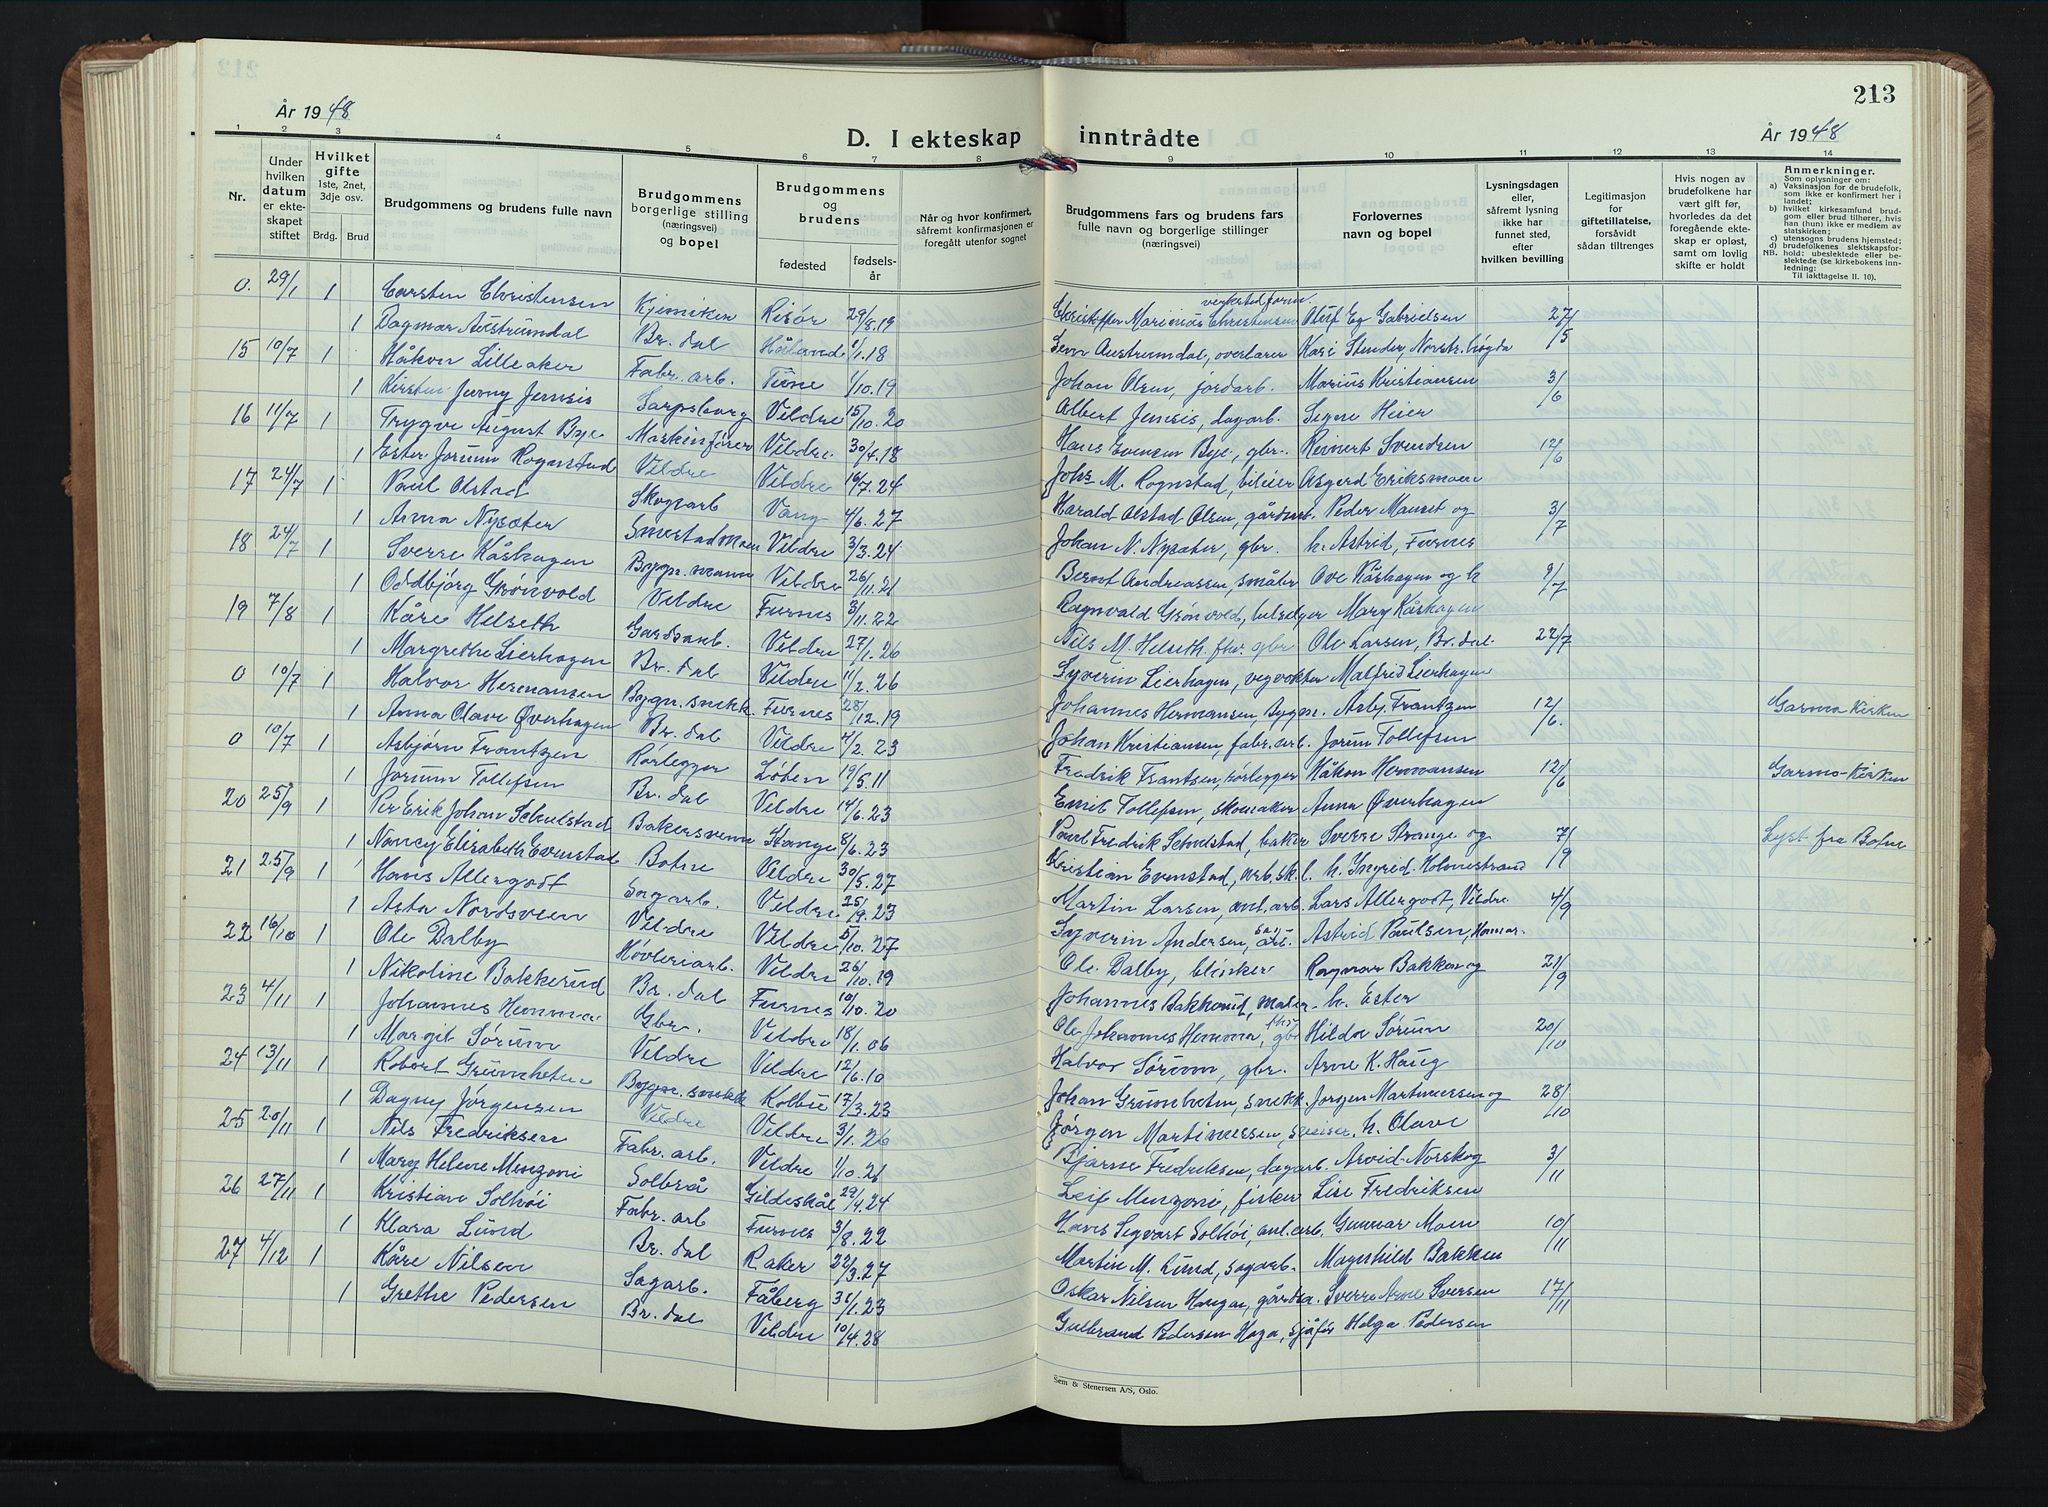 213
År 1948
D. I ekteskap inntrådte
År 1948
1 2 3 4 5 6 7 8 9 10 11 12 13 14
Nr.
Under hvilken datum er ekteskapet stiftet
Hvilket gifte 1ste, 2net, 3dje osv.
Brdg. Brud
Brudgommens og brudens fulle navn
Brudgommens borgerlige stilling (næringsvei) og bopel
Brudgommens og brudens
fødested
fødselsår
Når og hvor konfirmert, såfremt konfirmasjonen er foregått utenfor sognet
Brudgommens fars og brudens fars fulle navn og borgerlige stillinger (næringsvei)
Forlovernes navn og bopel
Lysningsdagen eller, såfremt lysning ikke har funnet sted, efter hvilken bevilling
Legitimasjon for giftetillatelse, forsåvidt sådan tiltrenges
Hvis nogen av brudefolkene har vært gift før, hvorledes da det foregående ekteskap er opløst, samt om lovlig skifte er holdt
Anmerkninger.
Som oplysninger om:
a) Vaksinasjon for de brudefolk, som ikke er konfirmert her i landet;
b) hvilket kirkesamfund brudgom eller brud tilhører, hvis han (hun) ikke er medlem av statskirken;
c) utensogns brudens hjemsted;
d) brudefolkenes slektskapsforhold: ubeslektede eller beslektede (se kirkebokens innledning:
NB. Til iakttagelse II. 10).
0. 29/1 1 Carsten Christensen Kjemiker Risør 29/8.19 Kristoffer Marinius Christensen verkstedform. Oluf Eg Gabrielsen 27/5
1 Dagmar Austrumdal Br. dal Håland 1.18 Sven Austrumdal, overlærer Kari Stender, Norstr.høgda
15 10/7 1 Håkon Lilleaker Fabr. arb. Tune 1/10.19 Johan Olsen, jordarb. Marius Kristiansen 3/6
1 Kirsten Jenny Jensis Sarpsborg Veldre 15/10.20 Albert Jensis, dagarb. Signe Heier
16 11/7 1 Trygve August Bye Maskinfører Veldre 30/4.18 Hans Evensen Bye, gbr. Reinert Svendsen 12/6
1 Ester Jorunn Rognstad Veldre Veldre 16/7.24 Johs M. Rognstad, bileier Asgerd Eriksmoen
17 24/7 1 Paul Olstad Skogsarb Vang 4/6.27 Harald Olstad Olsen, gårdsarb. Peder Mauset og 3/7
1 Anna Nysæter Smestadmoen Veldre 3/3.24 Johan N. Nysæter, gbr. h. Astrid, Furnes
18 24/7 1 Sverre Kåshagen Bygn. mann Veldre 26/11.21 Bernt Andreassen, småbr Ove Kåshagen og h 9/7
1 Oddbjørg Grønvold Veldre Furnes 3/11.22 Ragnvald Grønvold, bilselger Mary Kåshagen
19 7/8 1 Kåre Helseth Gardsarb. Veldre 27/1.26 Nils M. Helseth, fhv. gbr Ole Larsen, Br. dal. 22/7
1 Margrethe Lierhagen Br. dal Veldre 11/2.26 Syverin Lierhagen, vegvokter Malfrid Lierhagen
0 10/7 1 Halvor Hermansen Bygn. snekk. Furnes 28/12.19 Johannes Hermansen, bygm. Asbj. Frantzen 12/6. Garmo Kirken
1 Anna Olave Øverhagen Br. dal Veldre 4/2.23 Johan Kristiansen, fabr. arb. Jorun Tollefsen
0 10/7 1 Asbjørn Frantzen Rørlegger Løten 19/5.11 Fredrik Frantsen, rørlegger Håkon Hermansen 12/6 Garmo-Kirken
1 Jorunn Tollefsen Br. dal Veldre 14/6.23 Emil Tollefsen, skomaker Anna Øverhagen
20 25/9 1 Per Erik Johan Schulstad Bakersvenn Stange 8/6.23 Paul Fredrik Schulstad, baker Sverre Strange og 7/9 Lyst fra Botne
1 Nancy Elisabeth Evenstad Botne Veldre 30/5.27 Kristian Evenstad, arb.sk.l. h. Ingrid. Holmestrand
21 25/9 1 Hans Allergodt Sagarb. Veldre 25/9.23 Martin Larsen, anl.arb. Lars Allergodt, Veldre 4/9
1 Asta Nordsveen Veldre Veldre 5/10.27 Syverin Andersen, sagarb. Astrid Paulsen, Hamar.
22 16/10 1 Ole Dalby Høvleriarb. Veldre 26/10.19 Ole Dalby, blinker Ragnar Bakken og 21/9
1 Nikoline Bakkerud Br. dal Furnes 10/10.20 Johannes Bakkerud, maler h. Ester
23 4/11 1 Johannes Hemma Gbr. Veldre 18/1.06 Ole Johannes Hemma, fhv gbr Hilda Sørum 20/10
1 Margit Sørum Veldre Veldre 12/6.10 Halvor Sørum, gbr. Arne K. Haug
24 13/11 1 Robert Grønheten Bygn. snekk Kolbu 17/3.23 Johan Grønheten, snekk. Jørgen Martinussen og 28/10
1 Dagny Jørgensen Veldre Veldre 3/1.26 Jørgen Martinussen, sveiser, h. Olave
25 20/11 1 Nils Fredriksen Fabr. arb. Veldre 1/10.26 Bjarne Fredriksen, dagarb. Arvid Norskog 3/11
1 Mary Helene Menzoni Solbrå Gildeskål 29/4.24 Leif Menzoni, fisker Lise Fredriksen
26 27/11 1 Kristian Solhøi Fabr. arb Furnes 3/8.22 Hans Sigvart Solhøi, anl.arb. Gunnar Moen 10/11
1 Klara Lund Br. dal Raker 22/3.27 Martin M. Lund, sagarb. Magnhild Bakken
27 4/12 1 Kåre Nilsen Sagarb. Fåberg 31/1.23 Oskar Nilsen Haugan, gårdsa. Sverre Arne Sversen 17/11
1 Grethe Pedersen Br. dal Veldre 10/4.28 Gulbrand Pedersen Haga, sjåfør Helga Pedersen
Sem & Stenersen A/S, Oslo.